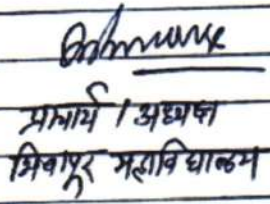 प्राचार्य / अध्यक्ष
भिवापूर महाविद्यालय